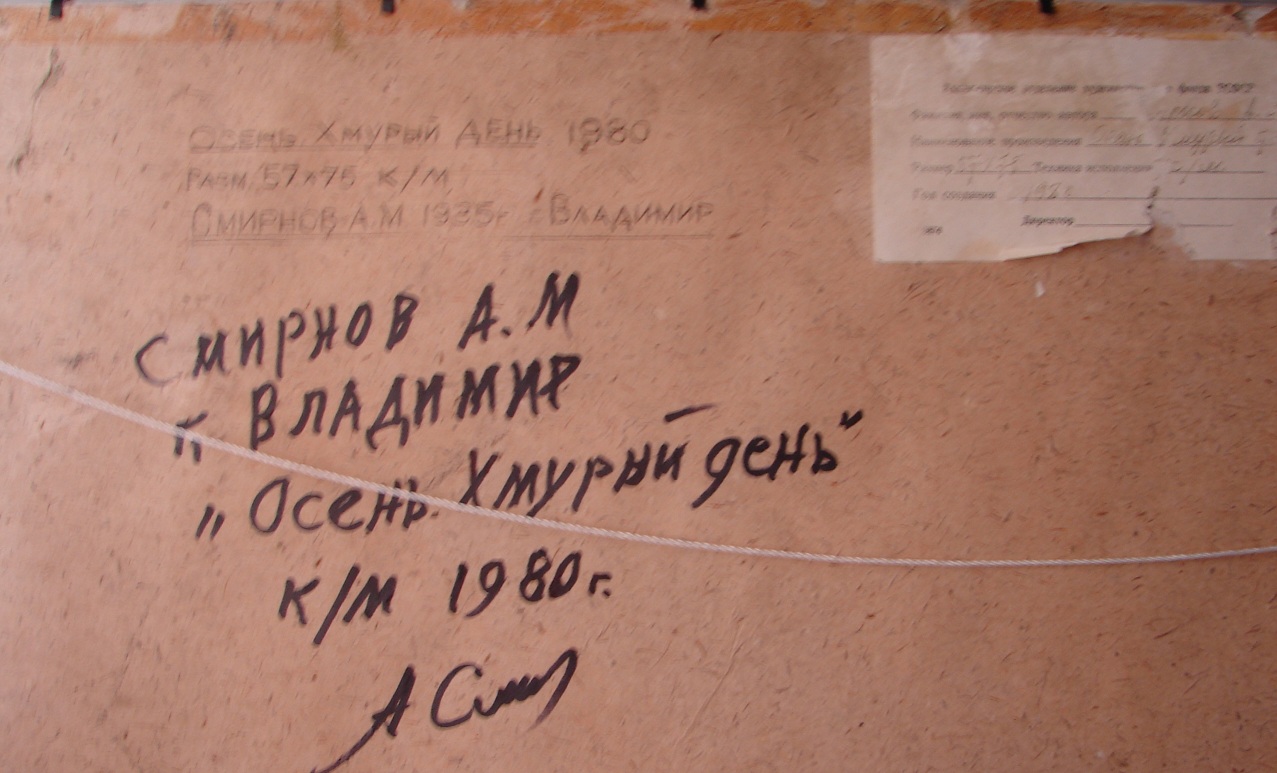 ОСЕНЬ ХМУРЫЙ ДЕНЬ 1980
РАЗМ 57×75 К/М
СМИРНОВ А.М 1935г г ВЛАДИМИР
СМИРНОВ А.М
г. ВЛАДИМИР
„Осень. Хмурый день"
К/М 1980г.
А Сми
отделение художественного фонда РСФСР
Фамилия, имя, отчество автора
Наименование произведения
Размер 57/75 Техника исполнения к/м
Год создания 1980
Директор